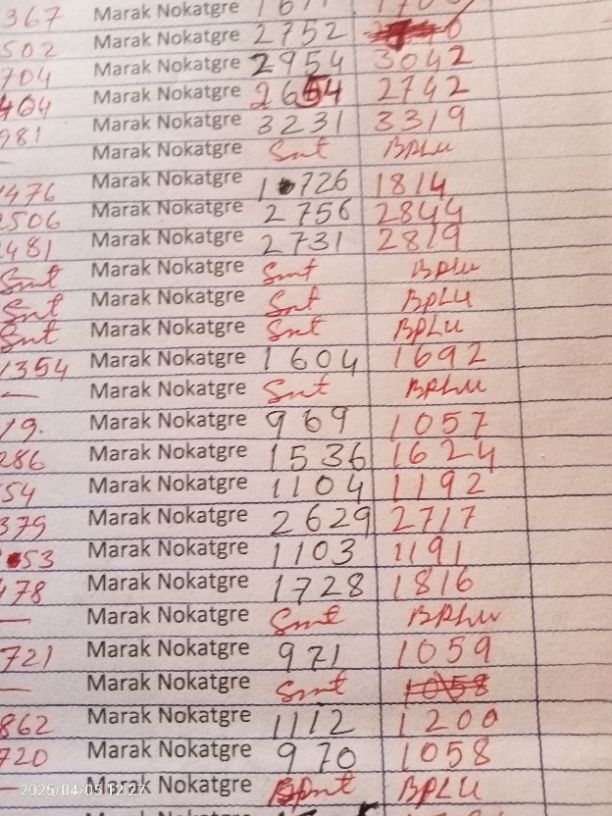 367 Marak Nokatgre
502 Marak Nokatgre 2752
704 Marak Nokatgre 2954 3042
464 Marak Nokatgre 2654 2742
981 Marak Nokatgre 3231 3319
— Marak Nokatgre Smt BPLU
1476 Marak Nokatgre 1726 1814
2506 Marak Nokatgre 2756 2844
481 Marak Nokatgre 2731 2819
Smt Marak Nokatgre Smt BPLU
Smt Marak Nokatgre Smt BPLU
Smt Marak Nokatgre Smt BPLU
1354 Marak Nokatgre 1604 1692
— Marak Nokatgre Smt BPLU
19. Marak Nokatgre 969 1057
286 Marak Nokatgre 1536 1624
54 Marak Nokatgre 1104 1192
379 Marak Nokatgre 2629 2717
53 Marak Nokatgre 1103 1191
478 Marak Nokatgre 1728 1816
— Marak Nokatgre Smt BPLU
721 Marak Nokatgre 971 1059
— Marak Nokatgre Smt 1058
862 Marak Nokatgre 1112 1200
720 Marak Nokatgre 970 1058
— Marak Nokatgre BPLU
2025/04/05 12:27